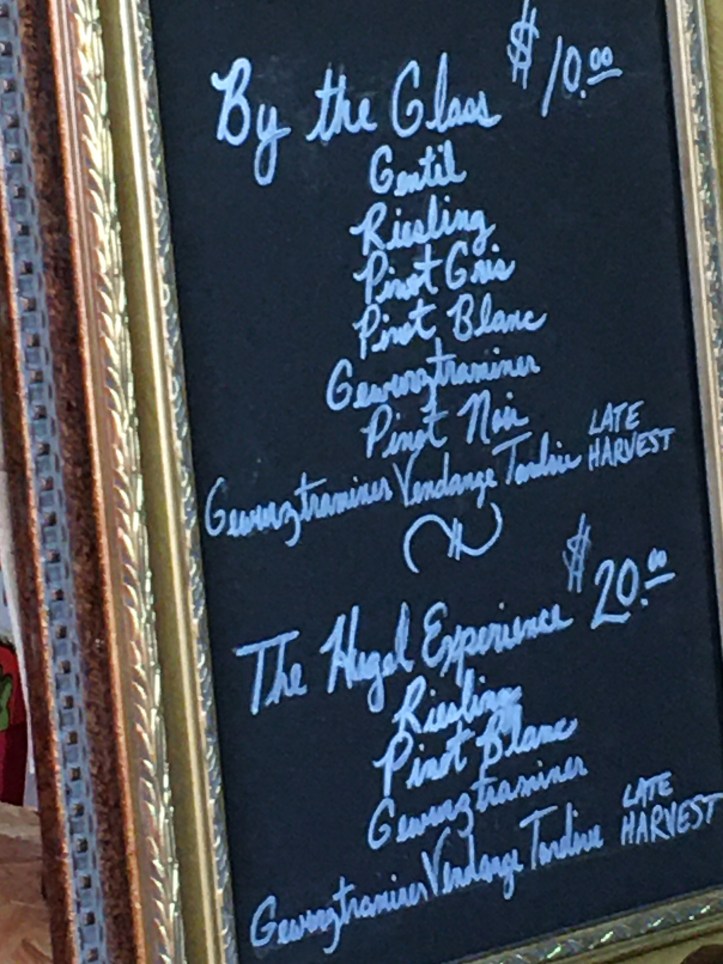 By the Glass $10.00
Gentil
Riesling
Pinot Gris
Pinot Blanc
Gewurztraminer
Pinot Noir
Gewurztraminer Vendange Tardive LATE HARVEST
The Hugel Experience $20.00
Riesling
Pinot Blanc
Gewurztraminer
Gewurztraminer Vendange Tardive LATE HARVEST